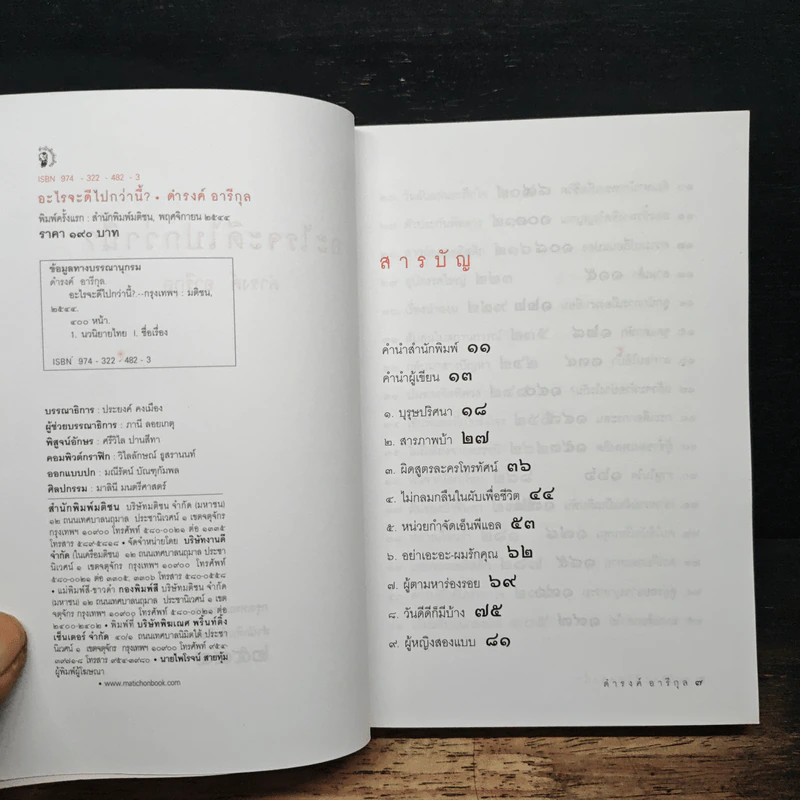 ISBN 974 - 322 - 482 - 3
อะไรจะดีไปกว่านี้? • ดำรงค์ อารีกุล
พิมพ์ครั้งแรก : สำนักพิมพ์มติชน, พฤศจิกายน ๒๕๔๔
ราคา ๑๙๐ บาท
ข้อมูลทางบรรณานุกรม
ดำรงค์ อารีกุล
อะไรจะดีไปกว่านี้?.--กรุงเทพฯ : มติชน,
๒๕๔๔.
๔๐๐ หน้า.
1. นวนิยายไทย I. ชื่อเรื่อง
ISBN 974 - 322 - 482 - 3
บรรณาธิการ : ประยงค์ คงเมือง
ผู้ช่วยบรรณาธิการ : ภานี ลอยเกตุ
พิสูจน์อักษร : ศรีวิไล ปานสีทา
คอมพิวต์กราฟิก : วิไลลักษณ์ ธูสรานนท์
ออกแบบปก : มณีรัตน์ บัณฑุกัมพล
ศิลปกรรม : มาลินี มนตรีศาสตร์
สำนักพิมพ์มติชน บริษัทมติชน จำกัด (มหาชน)
๑๒ ถนนเทศบาลนฤมาล ประชานิเวศน์ ๑ เขตจตุจักร
กรุงเทพฯ ๑๐๙๐๐ โทรศัพท์ ๕๘๐-๐๐๒๑ ต่อ ๑๒๓๕
โทรสาร ๕๘๙-๕๘๑๘ • จัดจำหน่ายโดย บริษัทงานดี
จำกัด (ในเครือมติชน) ๑๒ ถนนเทศบาลนฤมาล ประชา
นิเวศน์ ๑ เขตจตุจักร กรุงเทพฯ ๑๐๙๐๐ โทรศัพท์
๕๘๐-๐๐๒๑ ต่อ ๓๓๐๕, ๓๓๐๖ โทรสาร ๕๘๐-๐๕๕๘
• แม่พิมพ์สี-ขาวดำ กองพิมพ์สี บริษัทมติชน จำกัด
(มหาชน) ๑๒ ถนนเทศบาลนฤมาล ประชานิเวศน์ ๑ เขต
จตุจักร กรุงเทพฯ ๑๐๙๐๐ โทรศัพท์ ๕๘๐-๐๐๒๑ ต่อ
๒๔๐๐-๒๔๐๒ • พิมพ์ที่ บริษัทพิฆเณศ พริ้นท์ติ้ง
เซ็นเตอร์ จำกัด ๔๐/๑ ถนนเทศบาลนิมิตใต้ ประชา
นิเวศน์ ๑ เขตจตุจักร กรุงเทพฯ ๑๐๙๐๐ โทรศัพท์ ๙๕๔-
๓๙๗๑๘ โทรสาร ๙๕๔-๓๙๘๐ • นายไพโรจน์ สายทุ้ม
ผู้พิมพ์ผู้โฆษณา
• www.matichonbook.com
สารบัญ
คำนำสำนักพิมพ์ ๑๑
คำนำผู้เขียน ๑๓
๑. บุรุษปริศนา ๑๘
๒. สารภาพบ้า ๒๗
๓. ผิดสูตรละครโทรทัศน์ ๓๖
๔. ไม่กลมกลืนในผับเพื่อชีวิต ๔๔
๕. หน่วยกำจัดเอ็นพีแอล ๕๓
๖. อย่าเอะอะ-ผมรักคุณ ๖๒
๗. ผู้ตามหาร่องรอย ๖๙
๘. วันดีดีก็มีบ้าง ๗๕
๙. ผู้หญิงสองแบบ ๘๑
ดำรงค์ อารีกุล ๗